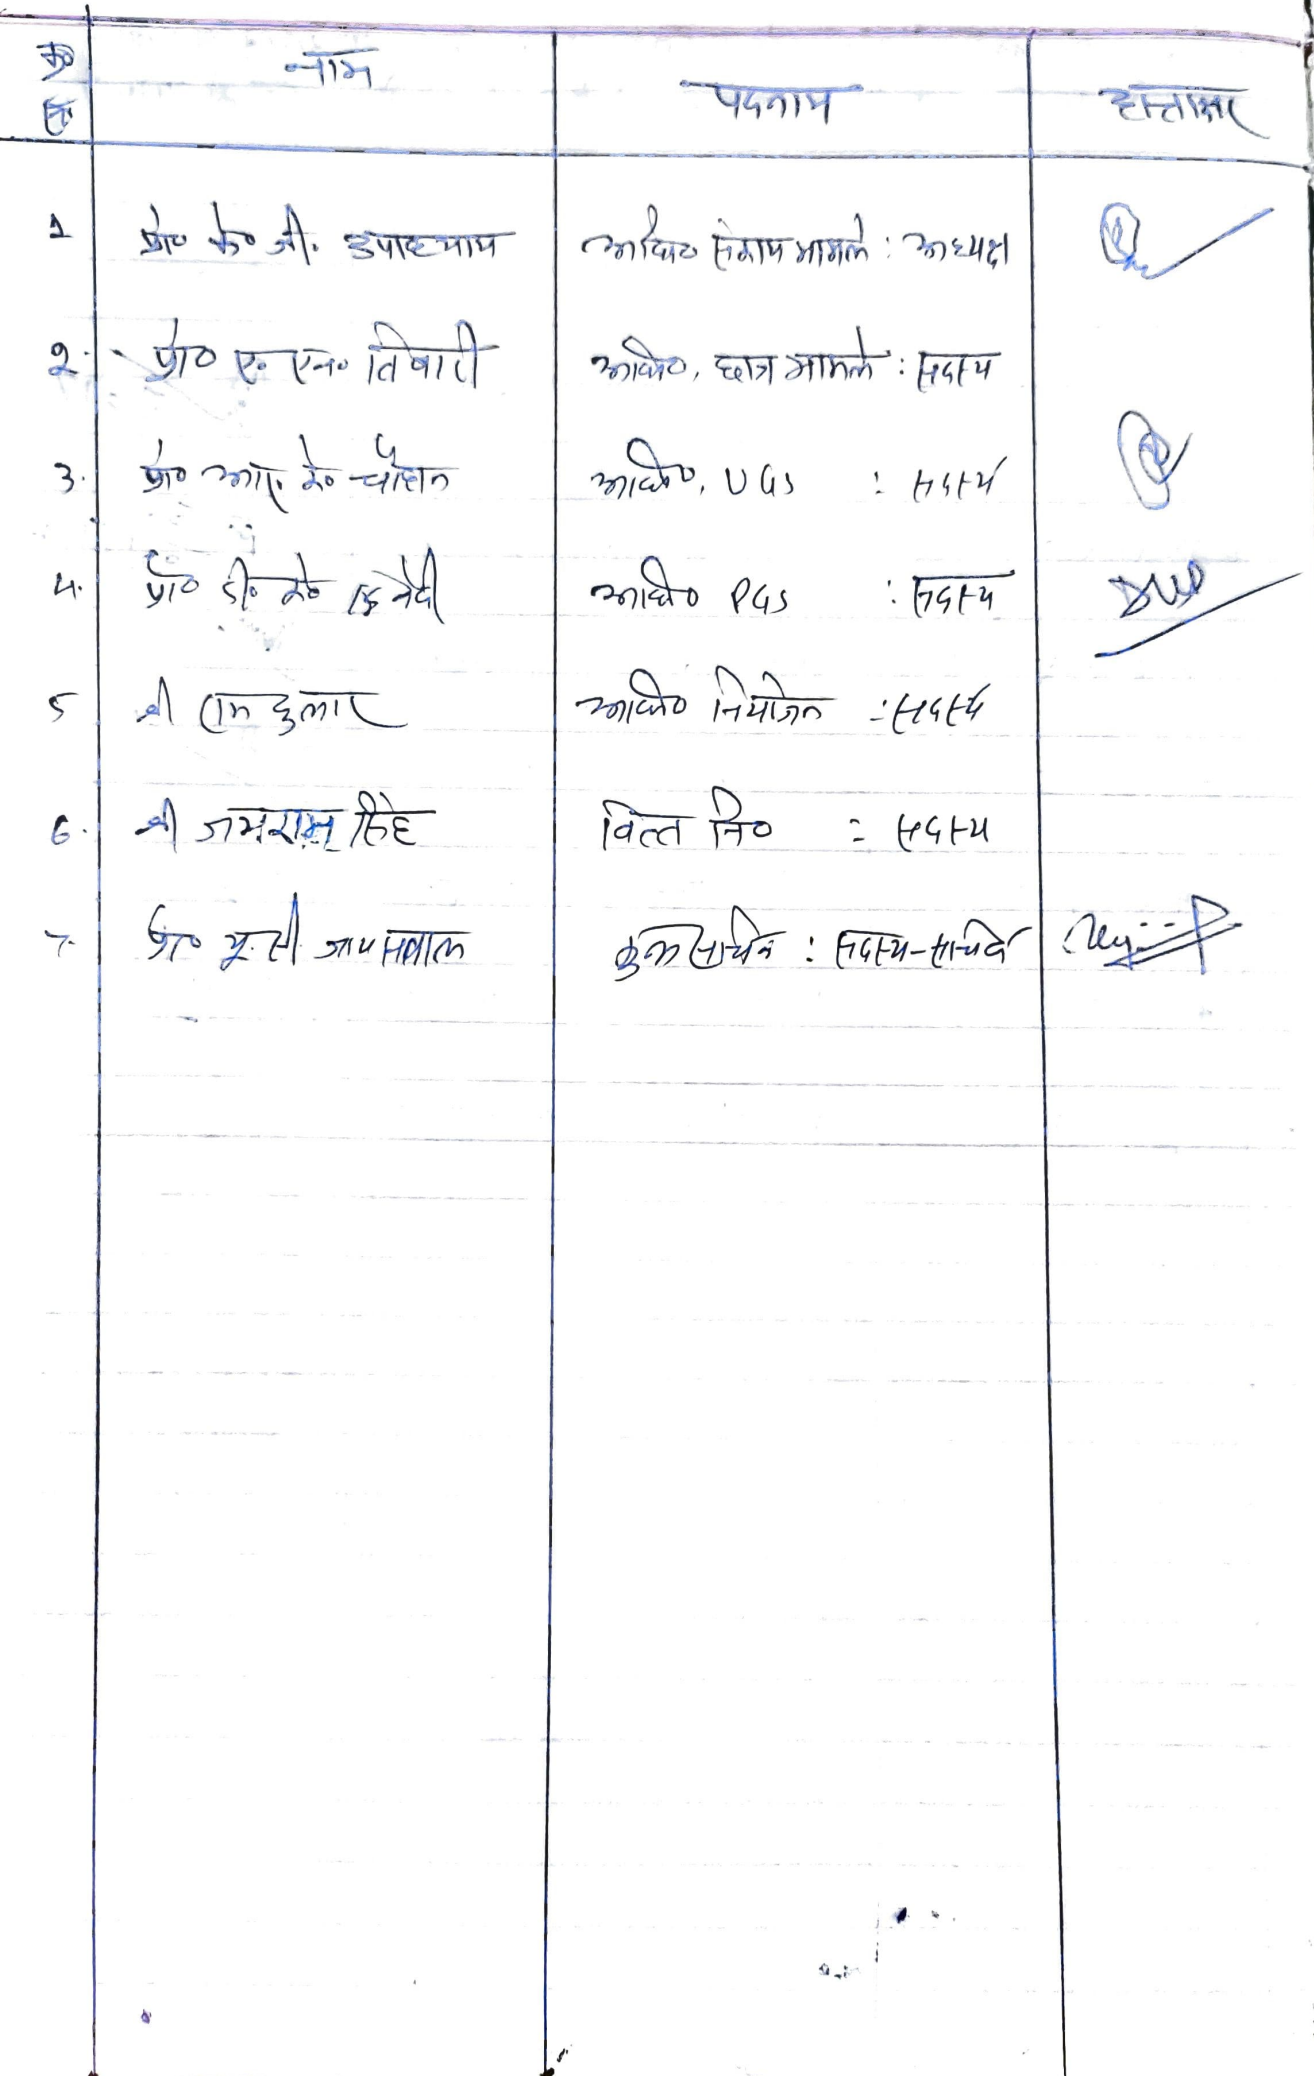 क्र० नाम पदनाम हस्ताक्षर
सं०
1 प्रो० के० जी. उपाध्याय अधि० संकाय मामले : अध्यक्ष
2. प्रो० ए. एन० तिवारी अधि०, छात्र मामले : सदस्य
3. प्रो० आर. के० चौहान अधि०, UGS : सदस्य
4. प्रो० डी. के० द्विवेदी अधि० PGS : सदस्य
5 श्री राम दुलार अधि० नियोजन : सदस्य
6. श्री जयराम सिंह वित्त नि० : सदस्य
7. प्रो० यू. सी. जायसवाल कुलसचिव : सदस्य-सचिव